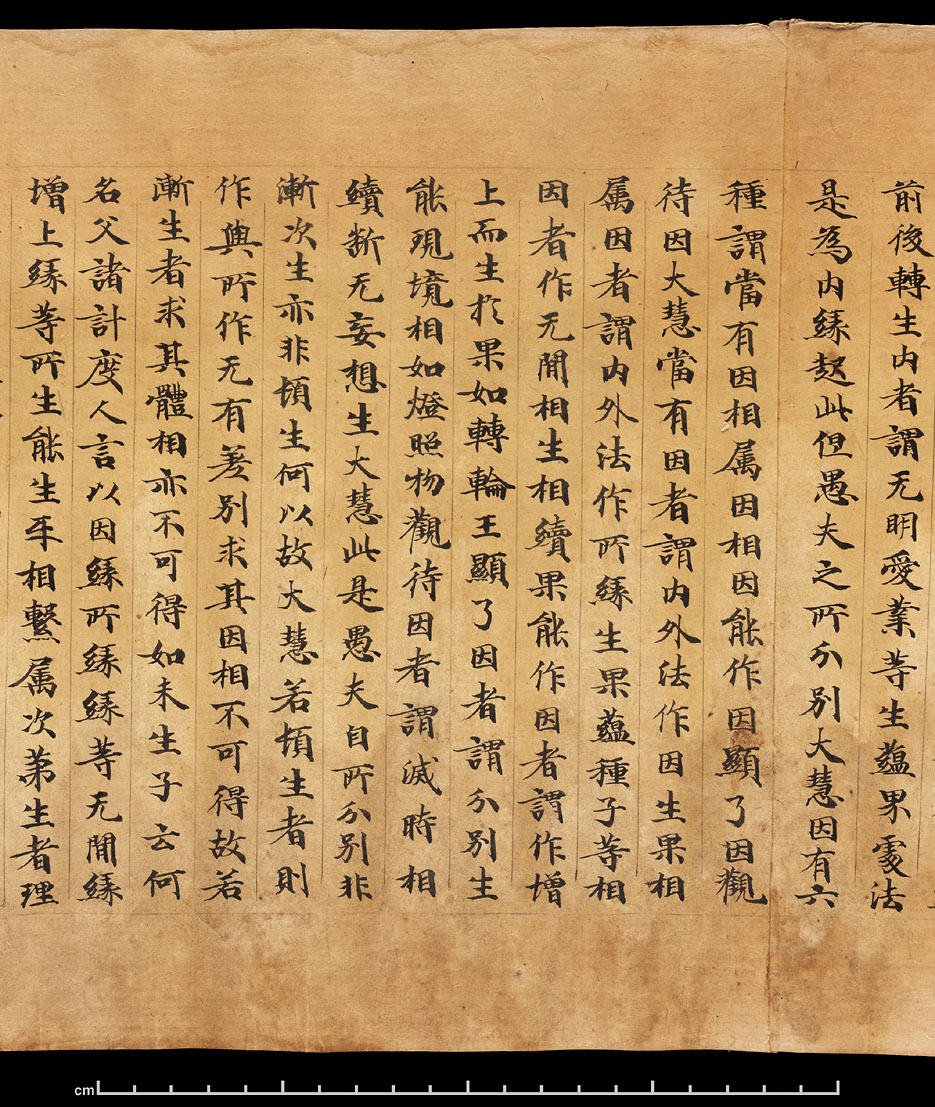 前後轉生内者謂无明愛業等生蘊界處法
是為内緣起此但愚夫之所分別大慧因有六
種謂當有因相属因相因能作因顯了因觀
待因大慧當有因者謂内外法作因生果相
属因者謂内外法作所緣生果蘊種子等相
因者作无閒相生相續果能作因者謂作增
上而生於果如轉輪王顯了因者謂分別生
能現境相如燈照物觀待因者謂滅時相
續斷无妄想生大慧此是愚夫自所分別非
漸次生亦非頓生何以故大慧若頓生者則
作與所作无有差別求其因相不可得故若
漸生者求其體相亦不可得如未生子云何
名父諸計度人言以因緣所緣緣等无閒緣
增上緣等所生能生牙相繫属次第生者理